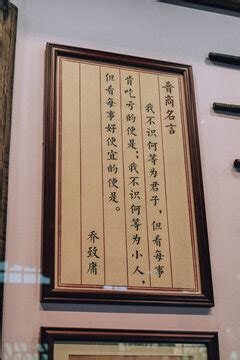 晋商名言
我不识何等为君子，但看每事
肯吃亏的便是；我不识何等为小人，
但看每事好便宜的便是。
乔致庸